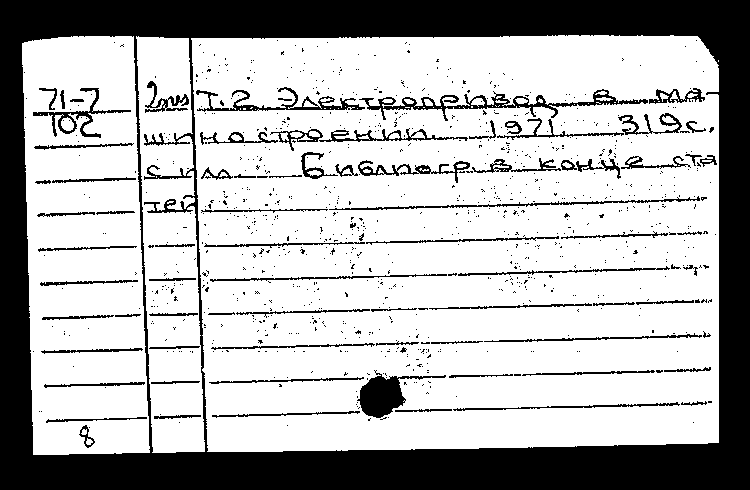 71-7 Т.2. Электропривод в ма-
102 шиностроении. 1971. 319с.
с илл. Библиогр. в конце ста
тей.
8